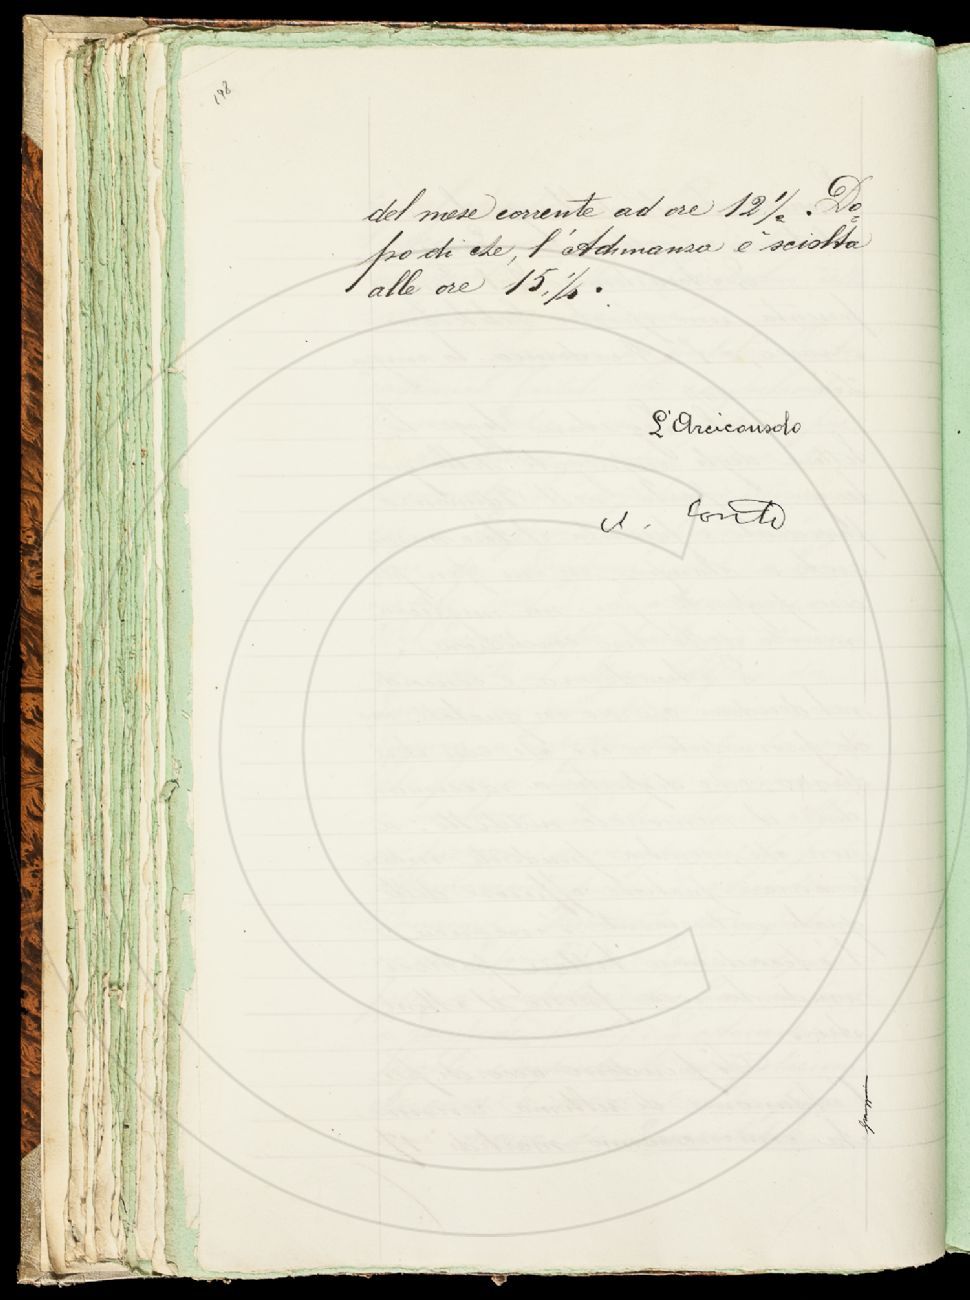 198
del mese corrente ad ore 12 1/2. Do=
po di che, l'Adunanza è sciolta
alle ore 15. 1/4.
L'Arciconsolo
A. Conti